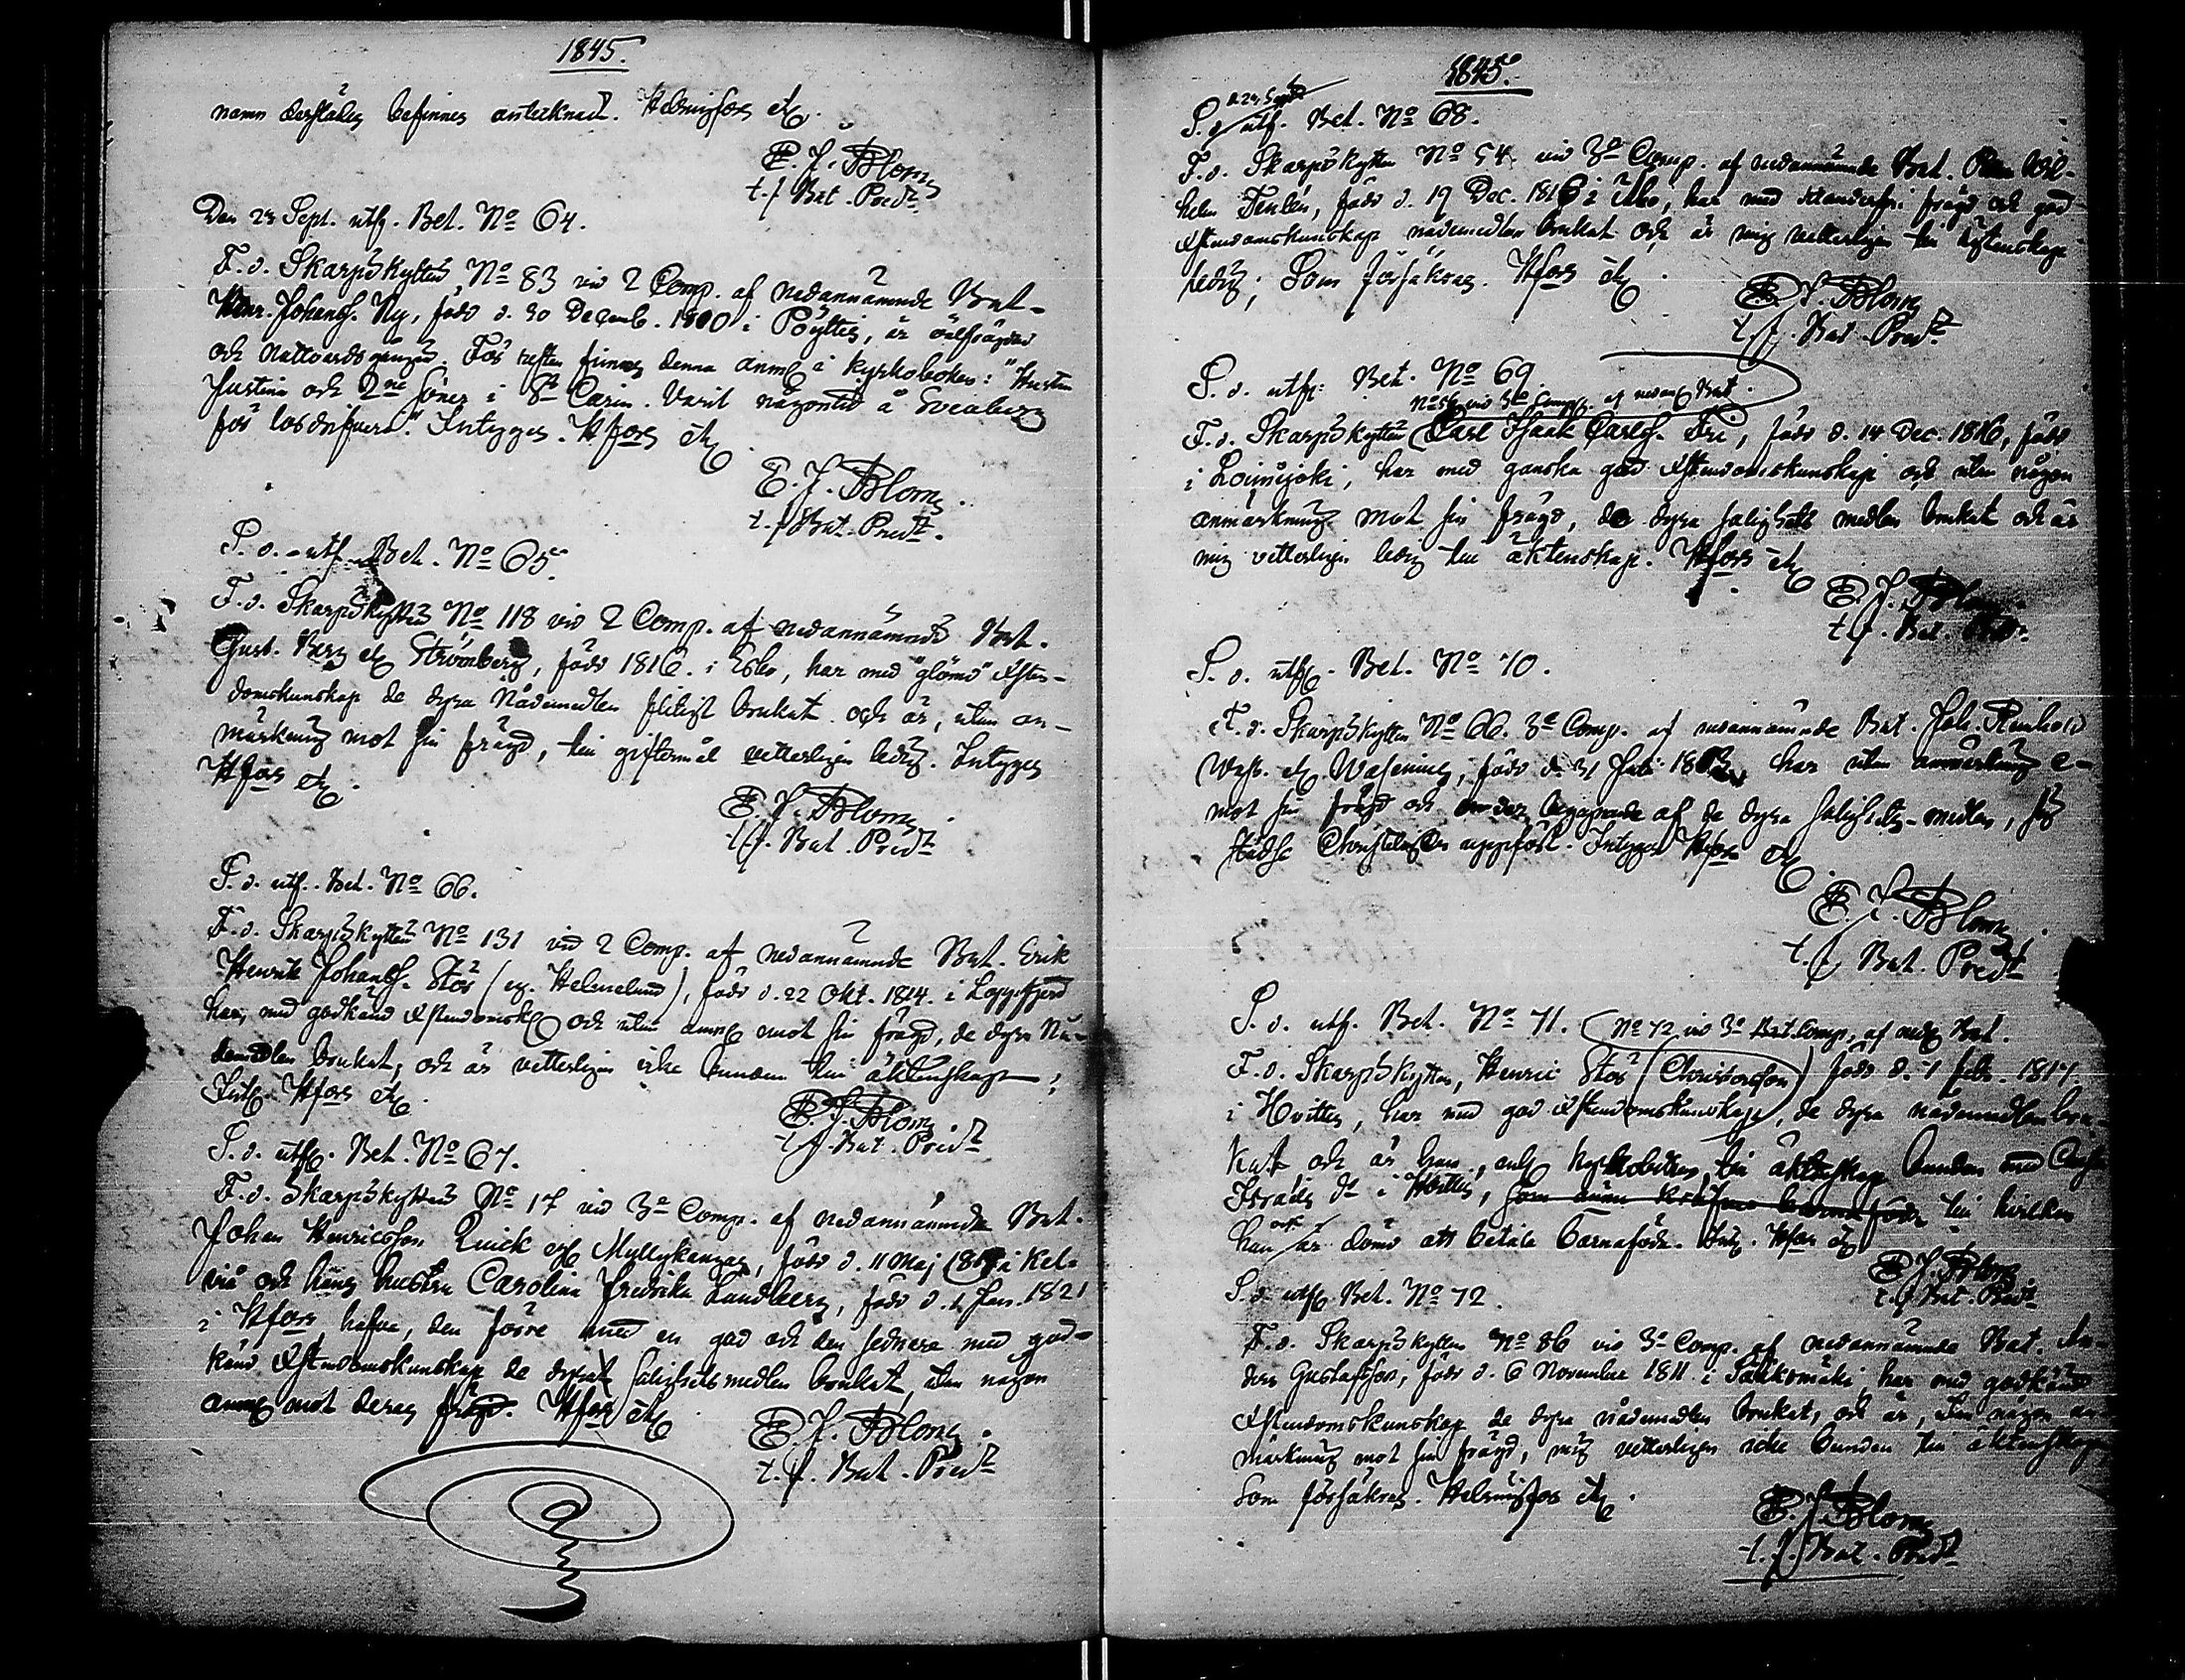 1845.
namn derstädes befinnes antecknadt. Helsingfors etc.
E. J. Blom
t. f. Bat. Pred.
Den 23 Sept. utf. Bet. No 64.
F. d. Skarpskytten No 83 vid 2 Comp. af nedannämnde Bat.
Henr. Johanss. Ny, född d. 30 Decemb. 1800 i Pöyttis, är välfrägdad
och Nattvardsgången. För resten finnes denna anm. i kyrkoboken: "Hustru
Justina och 2ne söner i St Carin. Varit någontid å Sveaborg
för lösdrifveri." Intygges. Hfors etc.
E. J. Blom
t. f. Bat. Pred.
S. d. utf. Bet. No 65.
F. d. Skarpskytten No 118 vid 2 Comp. af nedannämnde Bat.
Gust. Berg el. Strömberg, född 1816 i Esbo, har med "glömd" Christen-
domskunskap de dyra Nådemedlen flitigt brukat och är, utan an-
märkning mot sin frägd, till giftermål vetterligen ledig. Intygges
Hfors etc.
E. J. Blom
t. f. Bat. Pred.
S. d. utf. Bet. No 66.
F. d. Skarpskytten No 131 vid 2 Comp. af nedannämnde Bat. Erik
Henrik Johanss. Stör (eg. Helmelund), född d. 22 Okt. 1814 i Lappfjerd
har, med godkänd Christendomsk. och utan anm. mot sin frägd, de dyra Nå-
demedlen brukat, och är vetterligen icke bunden till äktenskap;
Int. Hfors etc.
E. J. Blom
t. f. Bat. Pred.
S. d. utf. Bet. No 67.
F. d. Skarpskytten No 17 vid 3e Comp. af nedannämnde Bat.
Johan Henricsson Quick el. Myllykangas, född d. 11 Maj i Kel-
viå och hans hustru Carolina Fredrika Lundberg, född d. 1 Jan. 1821
i Hfors hafva, den förre med en god och den sednare med god-
känd Christendomskunskap de dyra Salighetsmedlen brukat, utan någon
anm. mot deras frägd. Hfors etc.
E. J. Blom
t. f. Bat. Pred.
1845.
d. 23 Sept.
S. d. utf. Bet. No 68.
F. d. Skarpskytten No 54 vid 3e Comp. af nedannämnde Bat. Wil-
helm Tenlén, född d. 19 Dec. 1816 i Åbo, har med klanderfri frägd och god
Christendomskunskap nådemedlen brukat och är mig vetterligen till äktenskap
ledig; Som försäkras. Hfors etc.
E. J. Blom
t. f. Bat. Pred.
S. d. utf. Bet. No 69.
No 56 vid 3e Comp. af nedan. Bat.
F. d. Skarpskytten Carl Isaak Carlss. Fri, född d. 14 Dec. 1816, född
i Loimijoki, har med ganska god Christendomskunskap och utan någon
anmärkning mot sin frägd, de dyra salighets medlen brukat och är
mig vetterligen ledig till äktenskap. Hfors etc.
E. J. Blom
t. f. Bat. Pred.
S. d. utf. Bet. No 70.
F. d. Skarpskytten No 66. 3e Comp. af nedannämnde Bat. Joh. Reinhold
el. Wasenius, född d. 31 Juli har utan anmärkning e-
mot sin frägd och under begagnande af de dyra salighets-medlen, sig
städse Christeligen uppfört. Intygges Hfors etc.
E. J. Blom
t. f. Bat. Pred.
S. d. utf. Bet. No 71. No 72 vid 3e Comp. af ned. Bat.
F. d. Skarpskytten, Henric Stör (Christersson) född d. 1 Febr. 1817
i Hvittis, har med god Christendomskunskap, de dyra nådemedlen bru-
kat och är han, enl. kyrkoboken till äktenskap bunden med
Israels dr i Hvittis, till hvilken
han ock är dömd att betala barnaföda. Int. Hfors etc.
E. J. Blom
t. f. Bat. Pred.
S. d. utf. Bet. No 72.
F. d. Skarpskytten No 86 vid 3e Comp. af nedannämnde Bat. An-
ders Gustafsson, född d. 6 November 1811 i Sääksmäki, har med godkänd
Christendomskunskap de dyra nådemedlen brukat, och är, utan någon an-
märkning mot sin frägd, mig vetterligen icke bunden till äktenskap
Som försäkras. Helsingfors etc.
E. J. Blom
t. f. Bat. Pred.